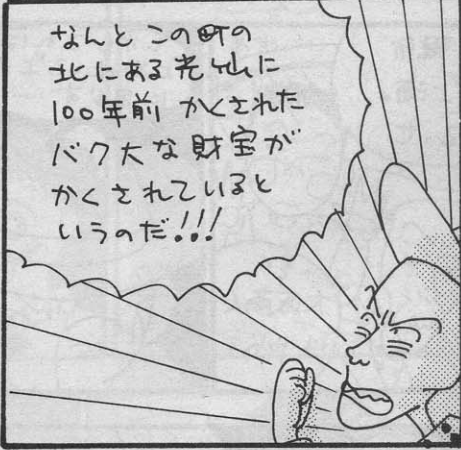 なんと この町の
北にある に
100年前 かくされた
バク大な財宝が
かくされていると
いうのだ!!!